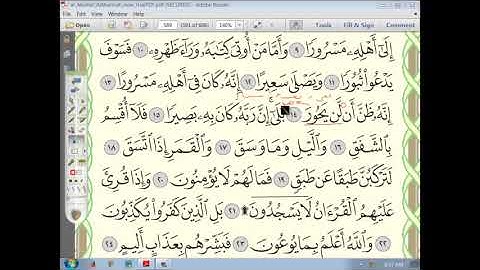 al_Mushaf_AlMadinah_new_HighPDF.pdf (SECURED) - Adobe Reader
589 (591 of 606) 140% Tools Fill & Sign Comment
إِلَىٰٓ أَهْلِهِۦ مَسْرُورًا ٩ وَأَمَّا مَنْ أُوتِىَ كِتَٰبَهُۥ وَرَآءَ ظَهْرِهِۦ ١٠ فَسَوْفَ
يَدْعُوا۟ ثُبُورًا ١١ وَيَصْلَىٰ سَعِيرًا ١٢ إِنَّهُۥ كَانَ فِىٓ أَهْلِهِۦ مَسْرُورًا ١٣
إِنَّهُۥ ظَنَّ أَن لَّن يَحُورَ ١٤ بَلَىٰٓ إِنَّ رَبَّهُۥ كَانَ بِهِۦ بَصِيرًا ١٥ فَلَآ أُقْسِمُ
بِٱلشَّفَقِ ١٦ وَٱلَّيْلِ وَمَا وَسَقَ ١٧ وَٱلْقَمَرِ إِذَا ٱتَّسَقَ ١٨
لَتَرْكَبُنَّ طَبَقًا عَن طَبَقٍ ١٩ فَمَا لَهُمْ لَا يُؤْمِنُونَ ٢٠ وَإِذَا قُرِئَ
عَلَيْهِمُ ٱلْقُرْءَانُ لَا يَسْجُدُونَ ۩ ٢١ بَلِ ٱلَّذِينَ كَفَرُوا۟ يُكَذِّبُونَ
٢٢ وَٱللَّهُ أَعْلَمُ بِمَا يُوعُونَ ٢٣ فَبَشِّرْهُم بِعَذَابٍ أَلِيمٍ ٢٤